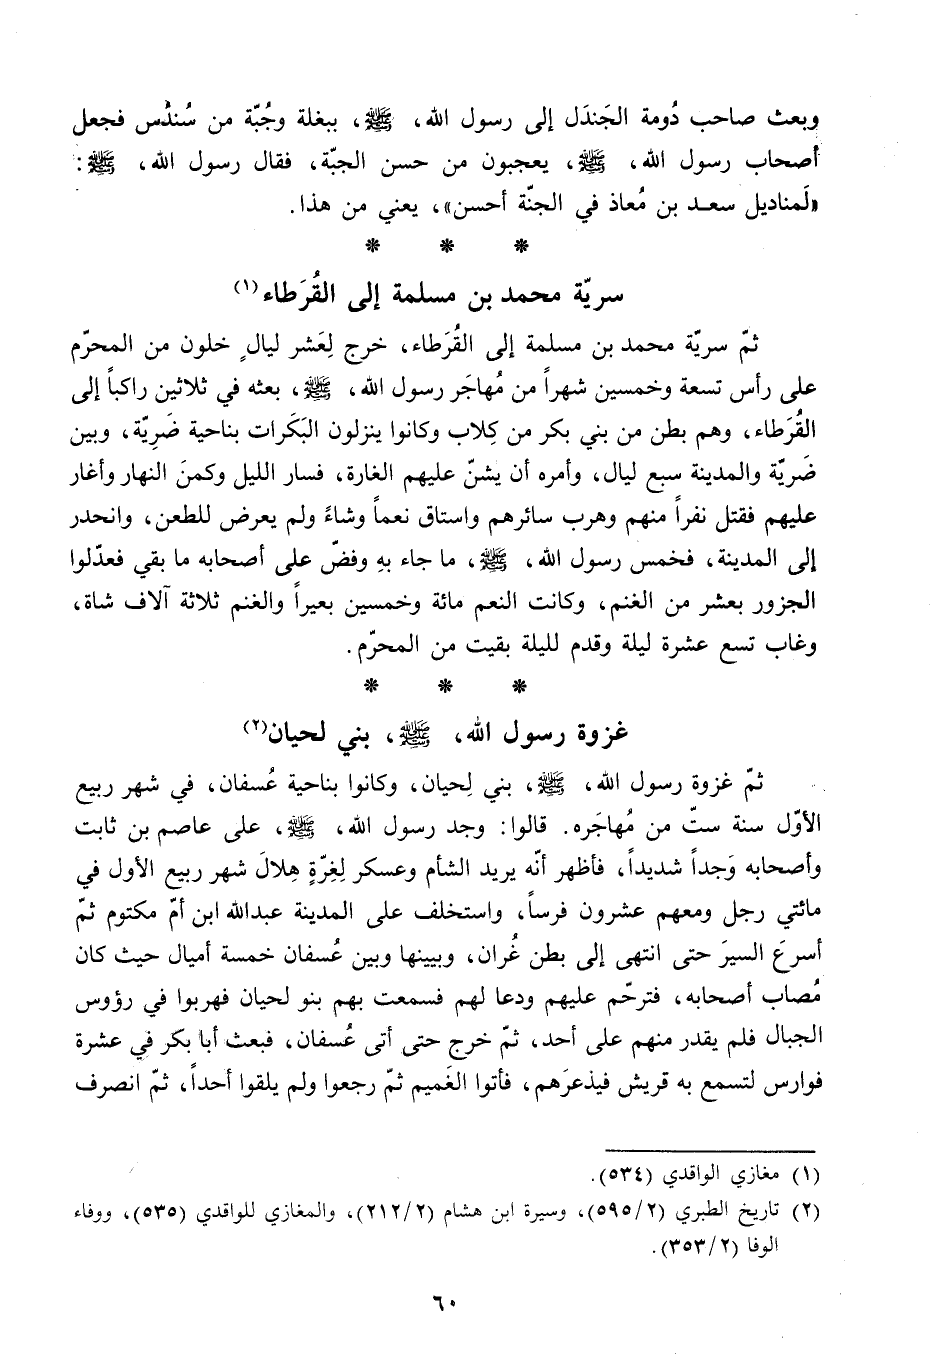 وبعث صاحب دُومة الجَندَل إلى رسول الله، ﷺ، ببغلة وجُبّة من سُندُس فجعل
أصحاب رسول الله، ﷺ، يعجبون من حسن الجبّة، فقال رسول الله، ﷺ:
«لَمناديل سعد بن مُعاذ في الجنّة أحسن»، يعني من هذا.
* * *
سريّة محمد بن مسلمة إلى القُرَطاء(١)
ثمّ سريّة محمد بن مسلمة إلى القُرَطاء، خرج لِعَشر ليالٍ خلون من المحرّم
على رأس تسعة وخمسين شهراً من مُهاجَر رسول الله، ﷺ، بعثه في ثلاثين راكباً إلى
القُرَطاء، وهم بطن من بني بكر من كِلاب وكانوا ينزلون البَكَرات بناحية ضَرِيّة، وبين
ضَريّة والمدينة سبع ليال، وأمره أن يشنّ عليهم الغارة، فسار الليل وكمنَ النهار وأغار
عليهم فقتل نفراً منهم وهرب سائرهم واستاق نعماً وشاءً ولم يعرض للطعن، وانحدر
إلى المدينة، فخمس رسول الله، ﷺ، ما جاء بهِ وفضّ على أصحابه ما بقي فعدّلوا
الجزور بعشر من الغنم، وكانت النعم مائة وخمسين بعيراً والغنم ثلاثة آلاف شاة،
وغاب تسع عشرة ليلة وقدم لليلة بقيت من المحرّم.
* * *
غزوة رسول الله، ﷺ، بني لحيان(٢)
ثمّ غزوة رسول الله، ﷺ، بني لِحيان، وكانوا بناحية عُسفان، في شهر ربيع
الأوّل سنة ستّ من مُهاجَره. قالوا: وجد رسول الله، ﷺ، على عاصم بن ثابت
وأصحابه وَجداً شديداً، فأظهر أنّه يريد الشأم وعسكر لِغِرّةِ هِلالَ شهر ربيع الأول في
مائتي رجل ومعهم عشرون فرساً، واستخلف على المدينة عبدالله ابن أمّ مكتوم ثمّ
أسرعَ السيرَ حتى انتهى إلى بطن غُران، وبينها وبين عُسفان خمسة أميال حيث كان
مُصاب أصحابه، فترحّم عليهم ودعا لهم فسمعت بهم بنو لحيان فهربوا في رؤوس
الجبال فلم يقدر منهم على أحد، ثمّ خرج حتى أتى عُسفان، فبعث أبا بكر في عشرة
فوارس لتسمع به قريش فيذعرَهم، فأتوا الغَميم ثمّ رجعوا ولم يلقوا أحداً، ثمّ انصرف
(١) مغازي الواقدي (٥٣٤).
(٢) تاريخ الطبري (٢/٥٩٥)، وسيرة ابن هشام (٢/٢١٢)، والمغازي للواقدي (٥٣٥)، ووفاء
الوفا (٢/٣٥٣).
٦٠